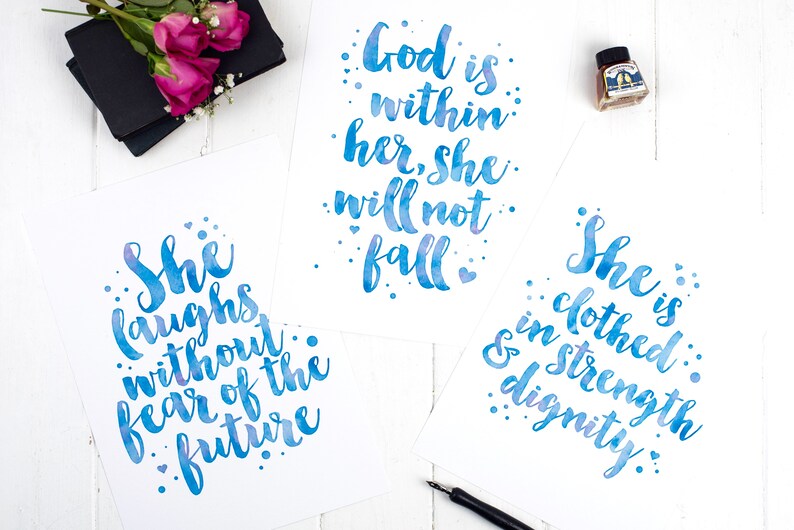 God is
within
her, she
will not
fall
She
laughs
without
fear of the
future
She is
clothed
in strength
& dignity